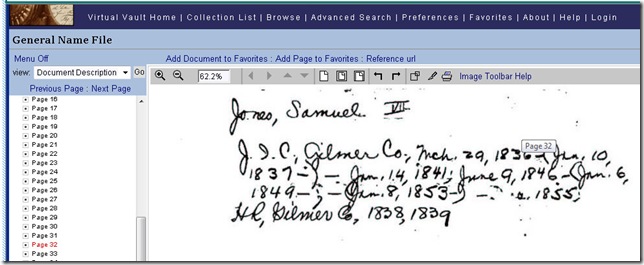 Virtual Vault Home | Collection List | Browse | Advanced Search | Preferences | Favorites | About | Help | Login
General Name File
Menu Off
Add Document to Favorites : Add Page to Favorites : Reference url
view: Document Description Go
62.2%
Image Toolbar Help
Previous Page : Next Page
Page 16
Page 17
Page 18
Page 19
Page 20
Page 21
Page 22
Page 23
Page 24
Page 25
Page 26
Page 27
Page 28
Page 29
Page 30
Page 31
Page 32
Page 33
Jones, Samuel VII
Page 32
J.I.C, Gilmer Co, Mch. 29, 1836-(Jan. 10,
1837-) - Jan. 14, 1841; June 9, 1846-(Jan. 6,
1849-; -(Jan. 8, 1853-) - 1855;
HR, Gilmer Co, 1838, 1839